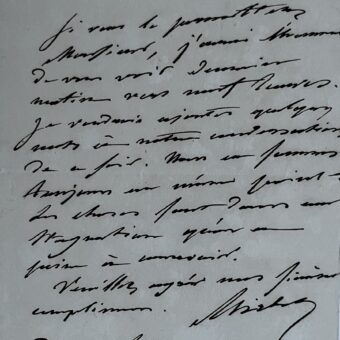 Si vous le permettez,
Monsieur, j'aurai l'honneur
de vous voir demain
matin vers neuf heures.
Je voudrais ajouter quelques
mots à notre conversation
de ce soir. Nous en sommes
toujours au même point.
Les choses sont dans une
stagnation qu'on a
peine à concevoir.
Veuillez agréer mes sincères
complimens.